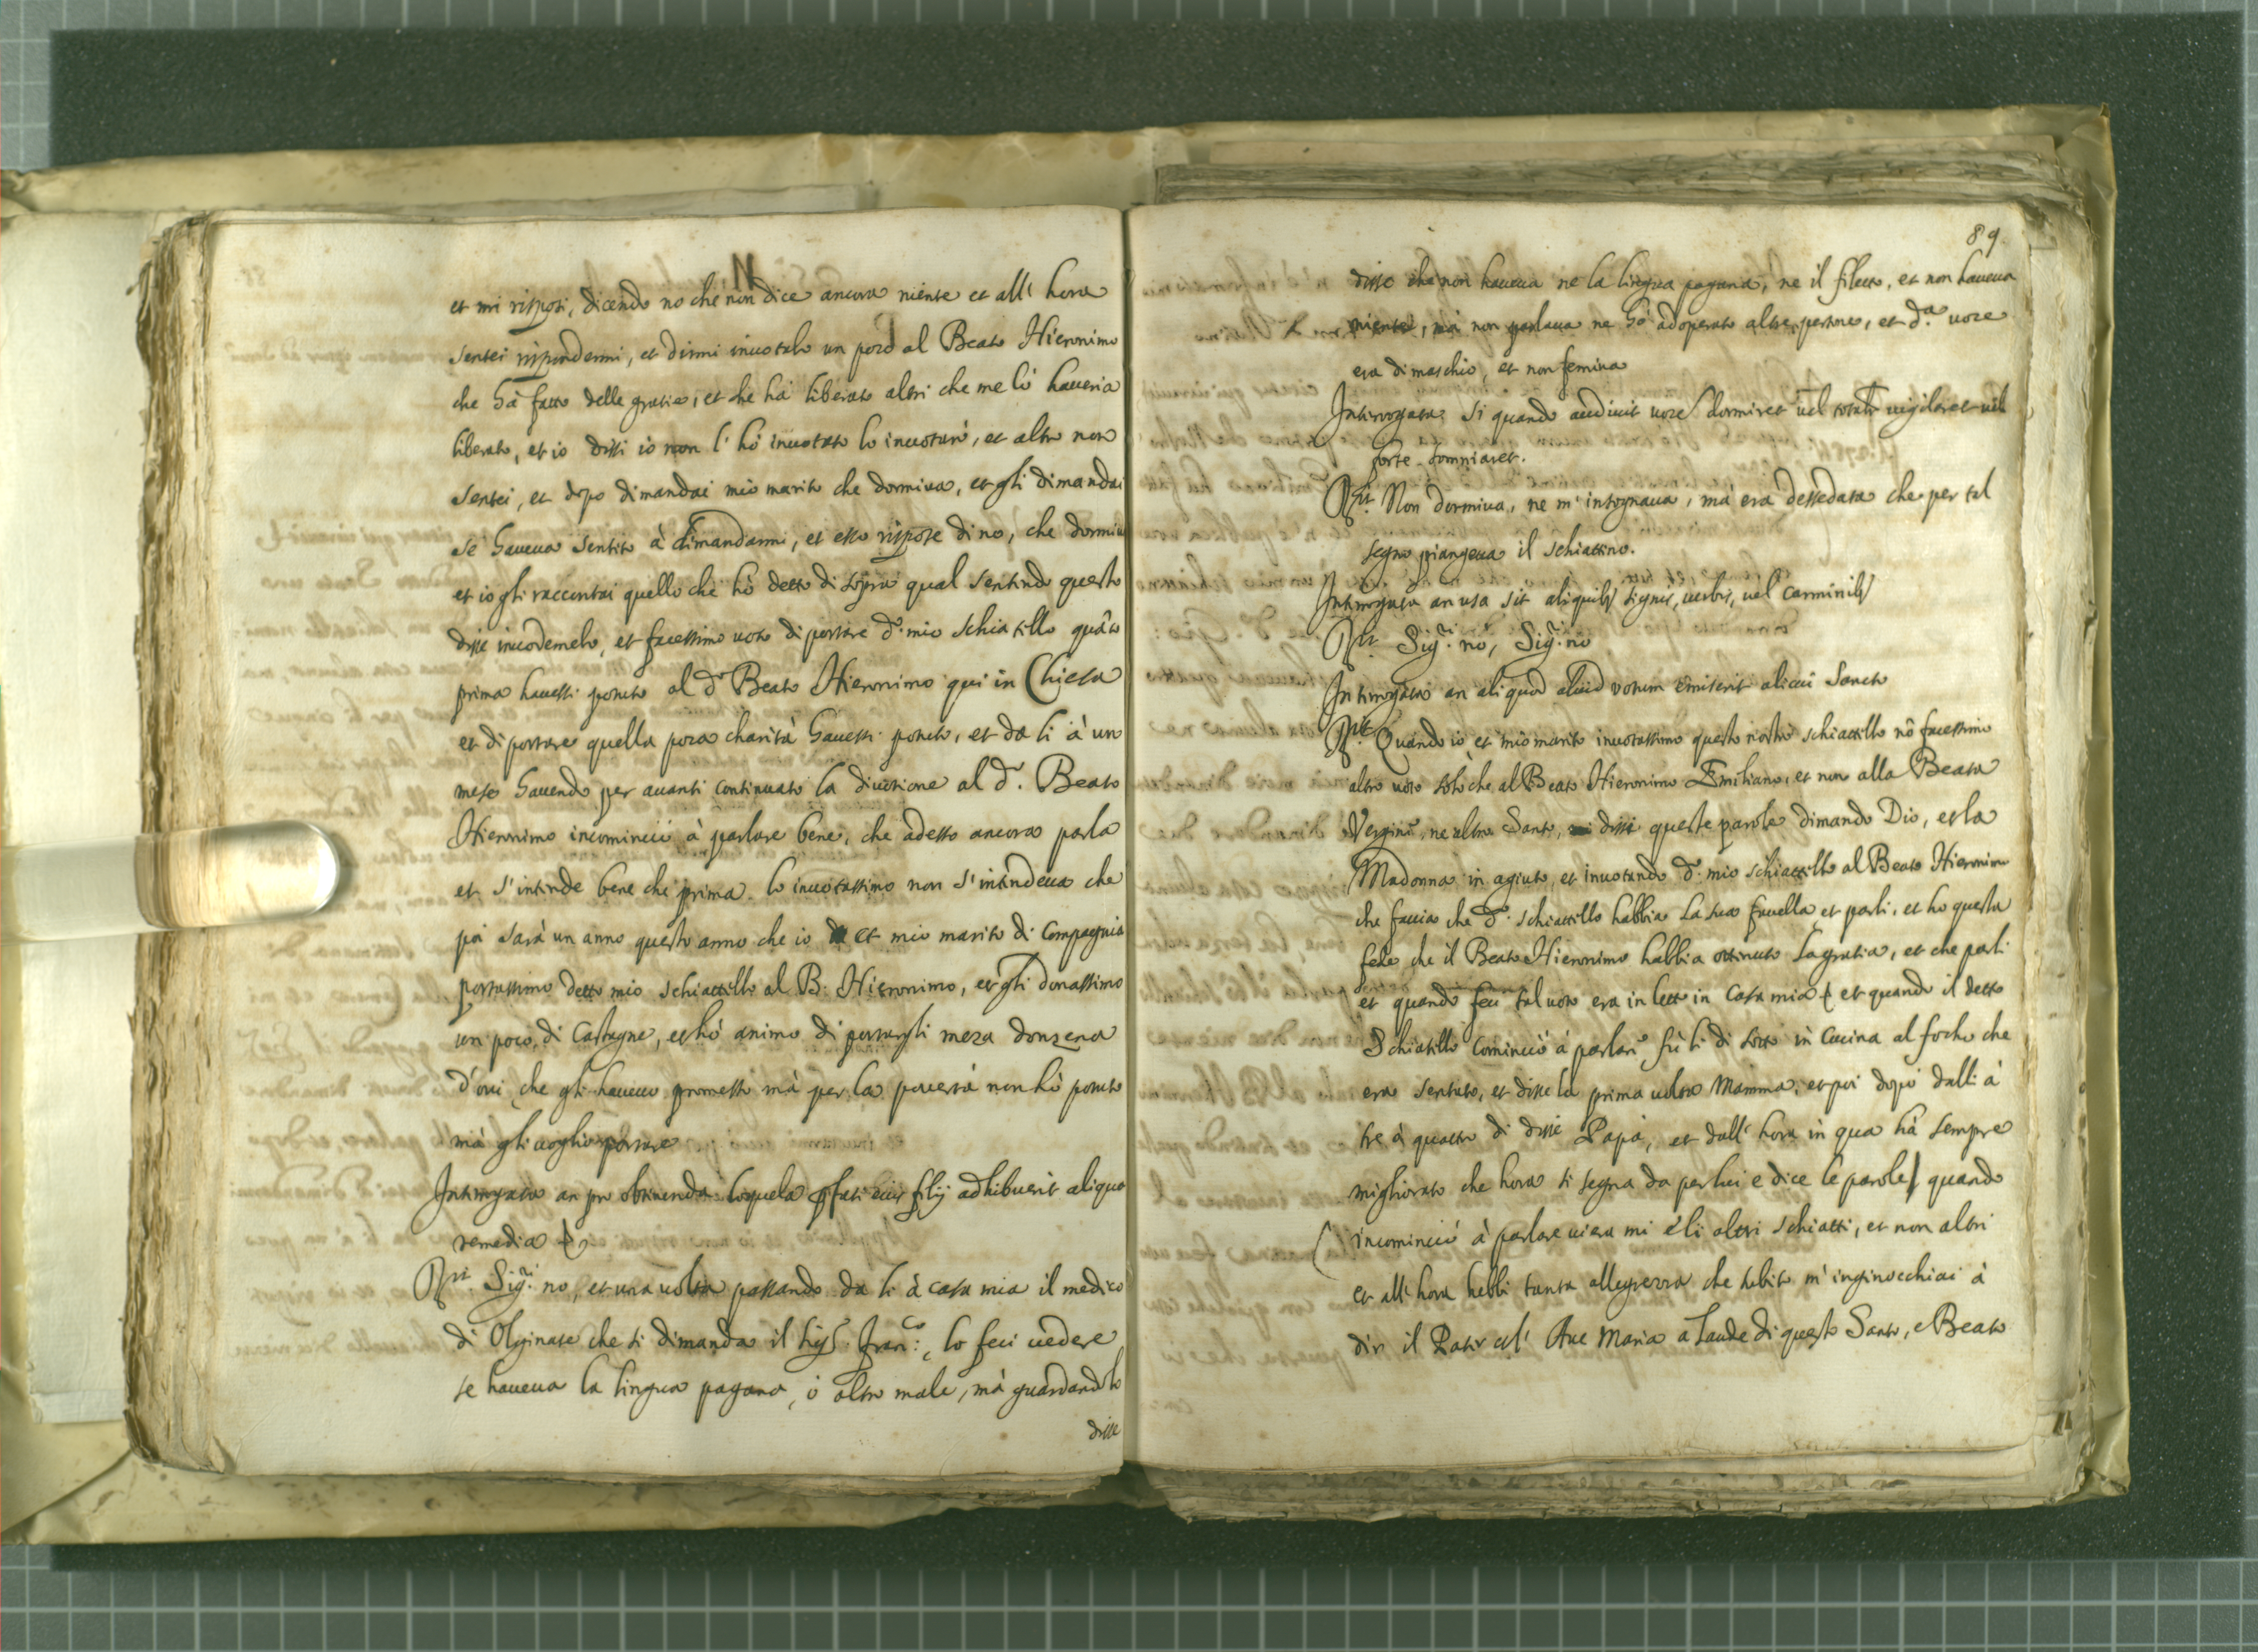 et mi risposi, dicendo no che non dice ancora niente et all' hora
sentei rispondermi, et dirmi invotalo un poco al Beato Hieronimo
che hà fatto delle gratie, et che hà liberato altri che me lo haveria
liberato, et io dissi io non l' hò invotato lo invotarò, et altro non
sentei, et dopo dimandai mio marito che dormiva, et gli dimandai
se haveva sentito à dimandarmi, et esso rispose di no, che dormiva
et io gli raccontai quello che hò detto di sopra qual sentendo questo
disse et facessimo voto di portare d.º mio schiatillo quãto
prima havessi potuto al d.º Beato Hieronimo qui in Chiesa
et di portare quella poca charità havessi potuto, et da li à un
mese havendo per avanti continuato la divotione al d.º Beato
Hieronimo incominciò à parlare bene, che adesso ancora parla
et s' intende bene che prima lo invotassimo non s' intendeva che
poi sarà un anno questo anno che io et mio marito di Compagnia
portassimo detto mio schiattillo al B. Hieronimo, et gli donassimo
un poco di Castagne, et hò animo di portargli meza donzena
d' ovi che gli havevo promesso mà per la povertà non hò potuto
mà gli voglio portare
Interrogata an pro obtinenda loquela pfati eius filij adhibuerit aliqua
remedia
Rt. Sig.ri no, et una volta passando da li à casa mia il medico
di Olginate che si dimanda il Sig.r Fran.co, lo feci vedere
se haveva la lingua pagana, ò altro male, mà guardandolo
disse
89.
disse che non haveva ne la lingua pagana, ne il filetto, et non haveva
niente, mà non parlava ne hò adoperato altre persone, et d.ª voce
era di maschio, et non femina
Interrogata si quando audivit voce dormiret vel vigilaret vel
forte somniaret.
Rt. Non dormiva, ne m' insognava, mà era dessedata che per tal
segno piangeva il schiattino.
Interrogata an usa sit aliquib9 signis, verbis, vel Carminib9
Rt. Sig.ri no, Sig.ri no
Interrogata an aliquod aliud votum emiserit alicui Sancto
Rt. Quando io et mio marito invotassimo questo nostro schiattillo nõ facessimo
altro voto solo che al Beato Hieronimo Emiliano, et non alla Beata
Vergine, ne altro Santo, dissi queste parole dimando Dio, et la
Madonna in agiuto, et invotando d.º mio schiattillo al Beato Hieronimo
che faccia che d.º schiattillo habbia la sua favella et parli, et ho questa
fede che il Beato Hieronimo habbia ottenuto la gratia, et che parli
et quando feci tal voto era in letto in Casa mia et quando il detto
Schiatillo cominciò à parlare fù li di sotto in Cucina al focho che
era sentato, et disse la prima volta Mamma, et poi dopò dalli à
tre à quattro di disse Papà, et dall' hora in qua hà sempre
migliorato che hora si segna da per lui e dice le parole quando
incominciò à parlare viera mi e li altri schiatti, et non altri
et all' hora hebbi tanta allegrezza che subito m' inginocchiai à
dir il Pater et l' Ave Maria a Laude di questo Santo, e Beato